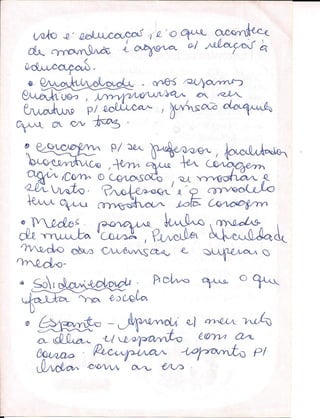 isto é educaçaõ, é o que acontece
de manhã é agora c/ relaçaõ à
educaçaõ.
• Criatividade. nós sejamos
criativos, improvisar a ser
criativo p/ educar, junsão daquilo
que a cr traz.
• Coragem p/ ser professor, facilitador
biocentrico, tem que ter coragem
agir com o coração, se mostrar e
ser visto. Professor é o modelo
tem que mostrar esta coragem
• Medos. porque tenho medo
de muita coisa, a dificuldade
medo das crianças e superar o
medo.
• Solidariedade. Acho que o que
falta na escola
• Espanto - Aprendi c/ meu neto
a olhar c/ espanto com as
coisas. Recuperar espanto p/
lidar com as crs.